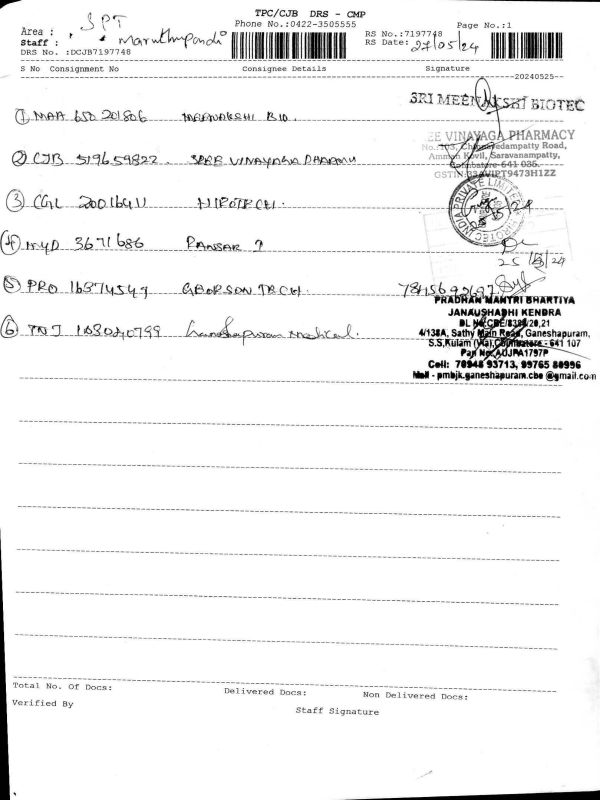 TPC/CJB DRS - CMP
Phone No.:0422-3505555
Page No.:1
Area : SPT
RS No.:7197748
Staff : Maruthupandi
RS Date: 27/05/24
DRS No. :DCJB7197748
S No Consignment No Consignee Details Signature
20240525
① MAA 650 201806 MEENAKSHI BIO. SRI MEENAKSHI BIOTEC
EE VINAYAGA PHARMACY
No.:103, Chinnavedampatty Road,
Amman Kovil, Saravanampatty,
Coimbatore-641 035.
GSTIN:33AVIPT9473H1ZZ
② CJB 519659822 SREE VINAYAGA
③ CGL 20016411 HIROTECH.
INDIA PRIVATE LIMITED
④ MYD 3671686 PANSAR
25
⑤ PRO 16874547 GEORSON TECH 7845695697
⑥ TNJ 1080240799 Ganeshapuram Medical.
PRADHAN MANTRI BHARTIYA
JANAUSHADHI KENDRA
4/138A, Sathy Main Road, Ganeshapuram,
S.S.Kulam (Via), Coimbatore - 641 107
Pan No: AOJPA1797P
Cell: 78948 93713, 99765 88996
Mail - pmbjk.ganeshapuram.cbe @gmail.com
Total No. Of Docs: Delivered Docs: Non Delivered Docs:
Verified By
Staff Signature